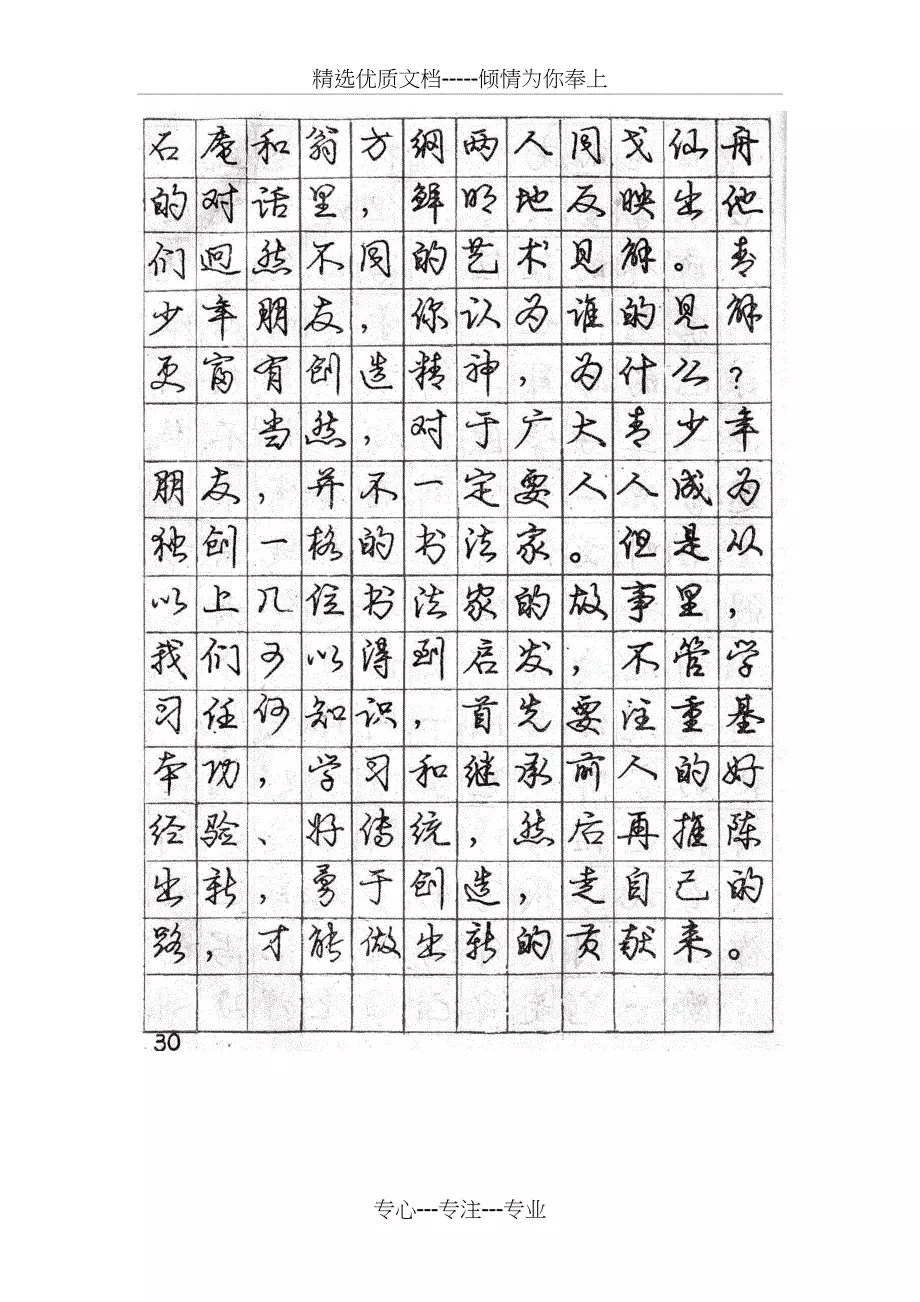 精选优质文档-----倾情为你奉上
石庵和翁方纲两人同戈仙舟
的对话里，鲜明地反映出他
们迥然不同的艺术见解。青
少年朋友，你认为谁的见解
更富有创造精神，为什么？
当然，对于广大青少年
朋友，并不一定要人人成为
独创一格的书法家。但是从
以上几位书法家的故事里，
我们可以得到启发，不管学
习任何知识，首先要注重基
本功，学习和继承前人的好
经验、好传统，然后再推陈
出新，勇于创造，走自己的
路，才能做出新的贡献来。
30
专心---专注---专业